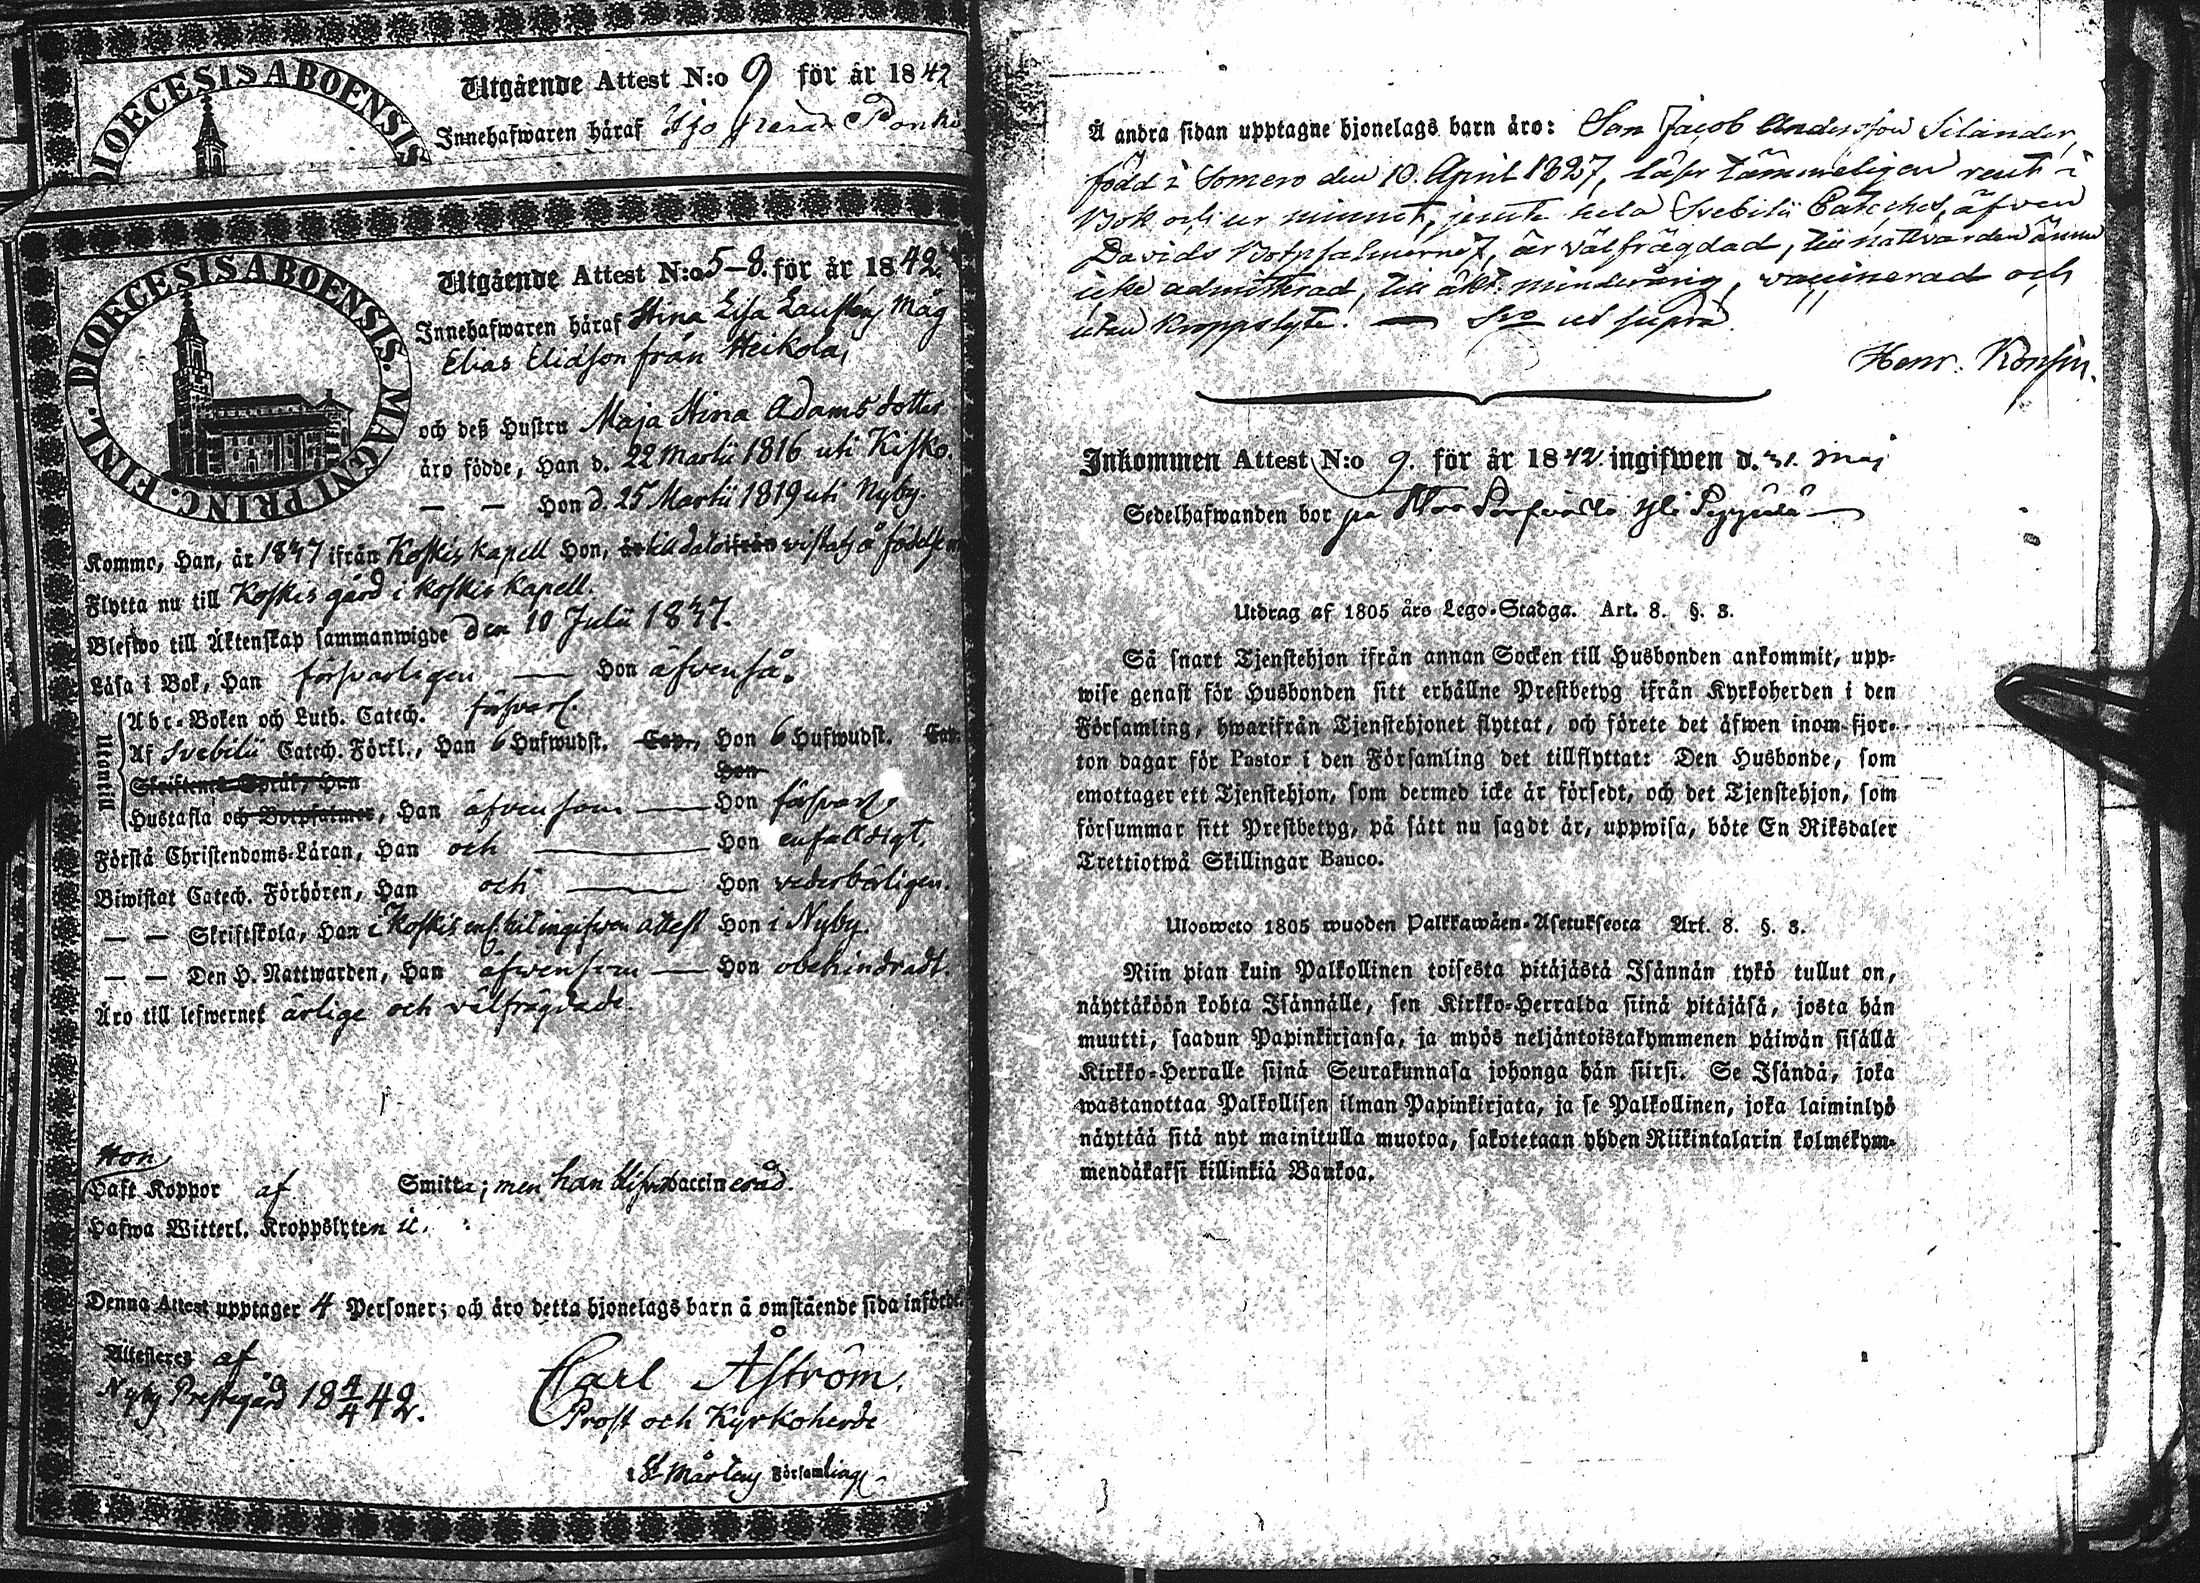 DIOECESIS ABOENSIS
Utgående Attest N:o 9 för år 1842
Innehafwaren häraf
DIOECESIS ABOENSIS. MAGNI PRINC. FINL.
Utgående Attest N:o 5–8. för år 1842.
Innehafwaren häraf Stina Lisa Måg
Elias Eliasson från Heikola,
och deß Hustru Maja Stina Adamsdotter
äro födde, Han d. 22 Martii 1816 uti Kisko.
— — Hon d. 25 Martii 1819 uti Nyby.
Kommo, Han, år 1837 ifrån Koskis kapell Hon, är till dato ifrån vistats å födelse
Flytta nu till Koskis gård i Koskis Kapell.
Blefwo till Äktenskap sammanwigde den 10 Julii 1837.
Läsa i Bok, Han försvarligen — Hon äfvenså.
Utontill
Abc-Boken och Luth. Catech. försvarl.
Af Svebilii Catech. Förkl., Han 6 Hufwudst. Cap. Hon 6 Hufwudst. Cap.
Skriftenes Språk, Han Hon
Hustafla och Botpsalmer, Han äfvensom — Hon försvarl.
Förstå Christendoms-Läran, Han och — Hon enfaldigt.
Biwistat Catech. Förhören, Han och — Hon vederbörligen.
— — Skriftskola, Han i Koskis enl. hit ingifven attest Hon i Nyby.
— — Den H. Nattwarden, Han äfvensom — Hon obehindradt.
Äro till lefwernet ärlige och välfrägdade.
Hon
Haft Koppor af Smitta; men han blifvit vaccinerad.
Hafwa Witterl. Kroppslyten ic.
Denna Attest upptager 4 Personer; och äro detta hjonelags barn å omstående sida införde.
Attesteres af
Nyby Prestegård 18 4/4 42.
Carl Åström.
Prost och Kyrkoherde
i St Mårtens Församling
Å andra sidan upptagne hjonelags barn äro: Son Jacob Andersson Silander,
född i Somero den 10. April 1827, läser tämmeligen rent i
Bok och ur minnet, jemte hela Svebilii Cateches, äfven
Davids Botpsalmer, är välfrägdad, till nattvarden ännu
icke admitterad, till äkt. minderårig, vaccinerad och
utan Kroppslyte. — ut supra.
Henr.
Inkommen Attest N:o 9. för år 1842. ingifwen d. 31. Maj
Sedelhafwanden bor på
Utdrag af 1805 års Lego-Stadga. Art. 8. §. 3.
Så snart Tjenstehjon ifrån annan Socken till Husbonden ankommit, upp-
wise genast för Husbonden sitt erhållne Prestbetyg ifrån Kyrkoherden i den
Församling, hwarifrån Tjenstehjonet flyttat, och förete det äfwen inom fjor-
ton dagar för Pastor i den Församling det tillflyttat: Den Husbonde, som
emottager ett Tjenstehjon, som dermed icke är försedt, och det Tjenstehjon, som
försummar sitt Prestbetyg, på sätt nu sagdt är, uppwisa, böte En Riksdaler
Trettiotwå Skillingar Banco.
Ulosweto 1805 wuoden Palkkawäen-Asetuksesta Art. 8. §. 3.
Niin pian kuin Palkollinen toisesta pitäjästä Isännän tykö tullut on,
näyttäköön kohta Isännälle, sen Kirkko-Herralda siinä pitäjäsä, josta hän
muutti, saadun Papinkirjansa, ja myös neljäntoistakymmenen päiwän sisällä
Kirkko-Herralle siinä Seurakunnasa johonga hän siirsi. Se Isändä, joka
wastanottaa Palkollisen ilman Papinkirjata, ja se Palkollinen, joka laiminlyö
näyttää sitä nyt mainitulla muotoa, sakotetaan yhden Riikintalarin kolmekym-
mendäkaksi killinkiä Bankoa.